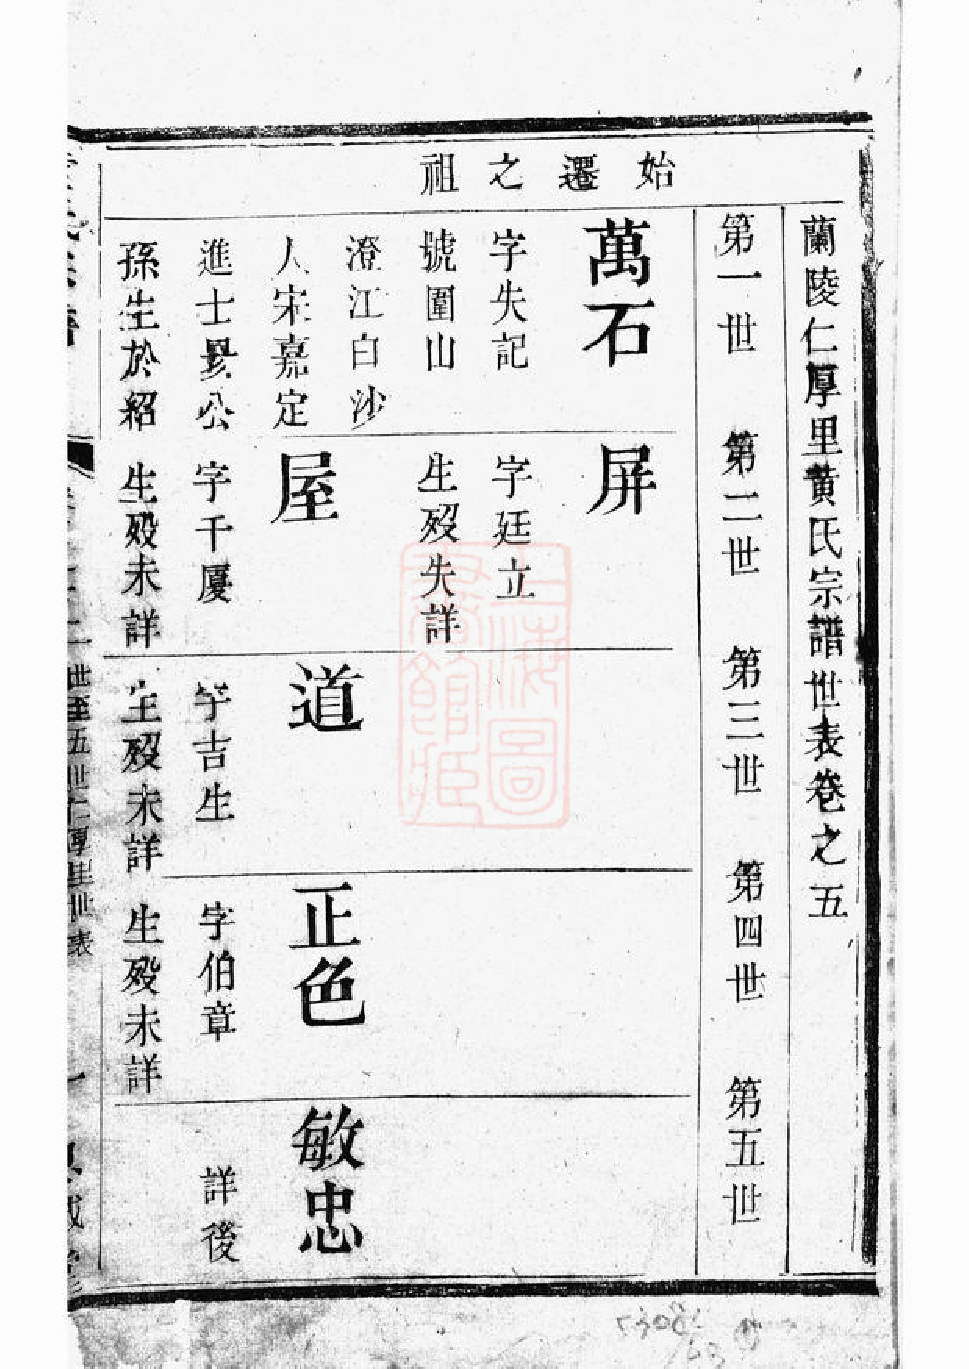 蘭陵仁厚里黄氏宗譜世表卷之五
第一世 第二世 第三世 第四世 第五世
始遷之祖
萬石
字失記
號圍山
澄江白沙
人宋嘉定
進士昙公
孫生於紹
屏
字廷立
生殁失詳
屋
字千厦
生殁未詳
道
字吉生
生殁未詳
正色
字伯章
生殁未詳
敏忠
詳後
世至五世仁厚里世表
上海圖
書館藏